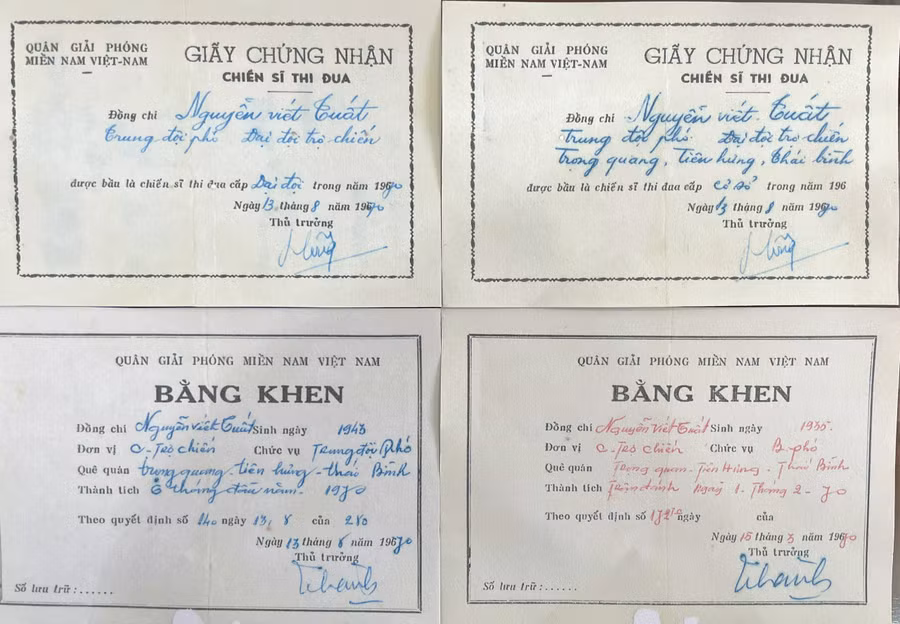 QUÂN GIẢI PHÓNG
MIỀN NAM VIỆT-NAM
GIẤY CHỨNG NHẬN
CHIẾN SĨ THI ĐUA
Đồng chi Nguyễn viết Tuất
Trung đội phó Đại đội trợ chiến
được bầu là chiến sĩ thi đua cấp Đại đội trong năm 1970
Ngày 13 tháng 8 năm 1970
Thủ trưởng
QUÂN GIẢI PHÓNG
MIỀN NAM VIỆT-NAM
GIẤY CHỨNG NHẬN
CHIẾN SĨ THI ĐUA
Đồng chi Nguyễn viết Tuất
trung đội phó Đại đội trợ chiến
trọng quang, Tiên hưng, Thái bình
được bầu là chiến sĩ thi đua cấp cơ sở trong năm 196
Ngày 13 tháng 8 năm 1970
Thủ trưởng
QUÂN GIẢI PHÓNG MIỀN NAM VIỆT NAM
BẰNG KHEN
Đồng chí Nguyễn viết Tuất Sinh ngày 1945
Đơn vị C-Trợ chiến Chức vụ Trung đội Phó
Quê quán trọng quang - tiên hưng - thái Bình
Thành tích 6 tháng đầu năm - 1970
Theo quyết định số 140 ngày 13, 8 của
Ngày 13 tháng 8 năm 1970
Thủ trưởng
Thanh
Số lưu trữ:......
QUÂN GIẢI PHÓNG MIỀN NAM VIỆT NAM
BẰNG KHEN
Đồng chí Nguyễn Viết Tuất Sinh ngày
Đơn vị C-Trợ chiến Chức vụ B-phó
Quê quán Trọng quan - Tiên Hưng - Thái Bình
Thành tích Trận đánh ngày 1 - Tháng 2 - 70
Theo quyết định số ngày của
Ngày 15 tháng 3 năm 1970
Thủ trưởng
Thanh
Số lưu trữ:......